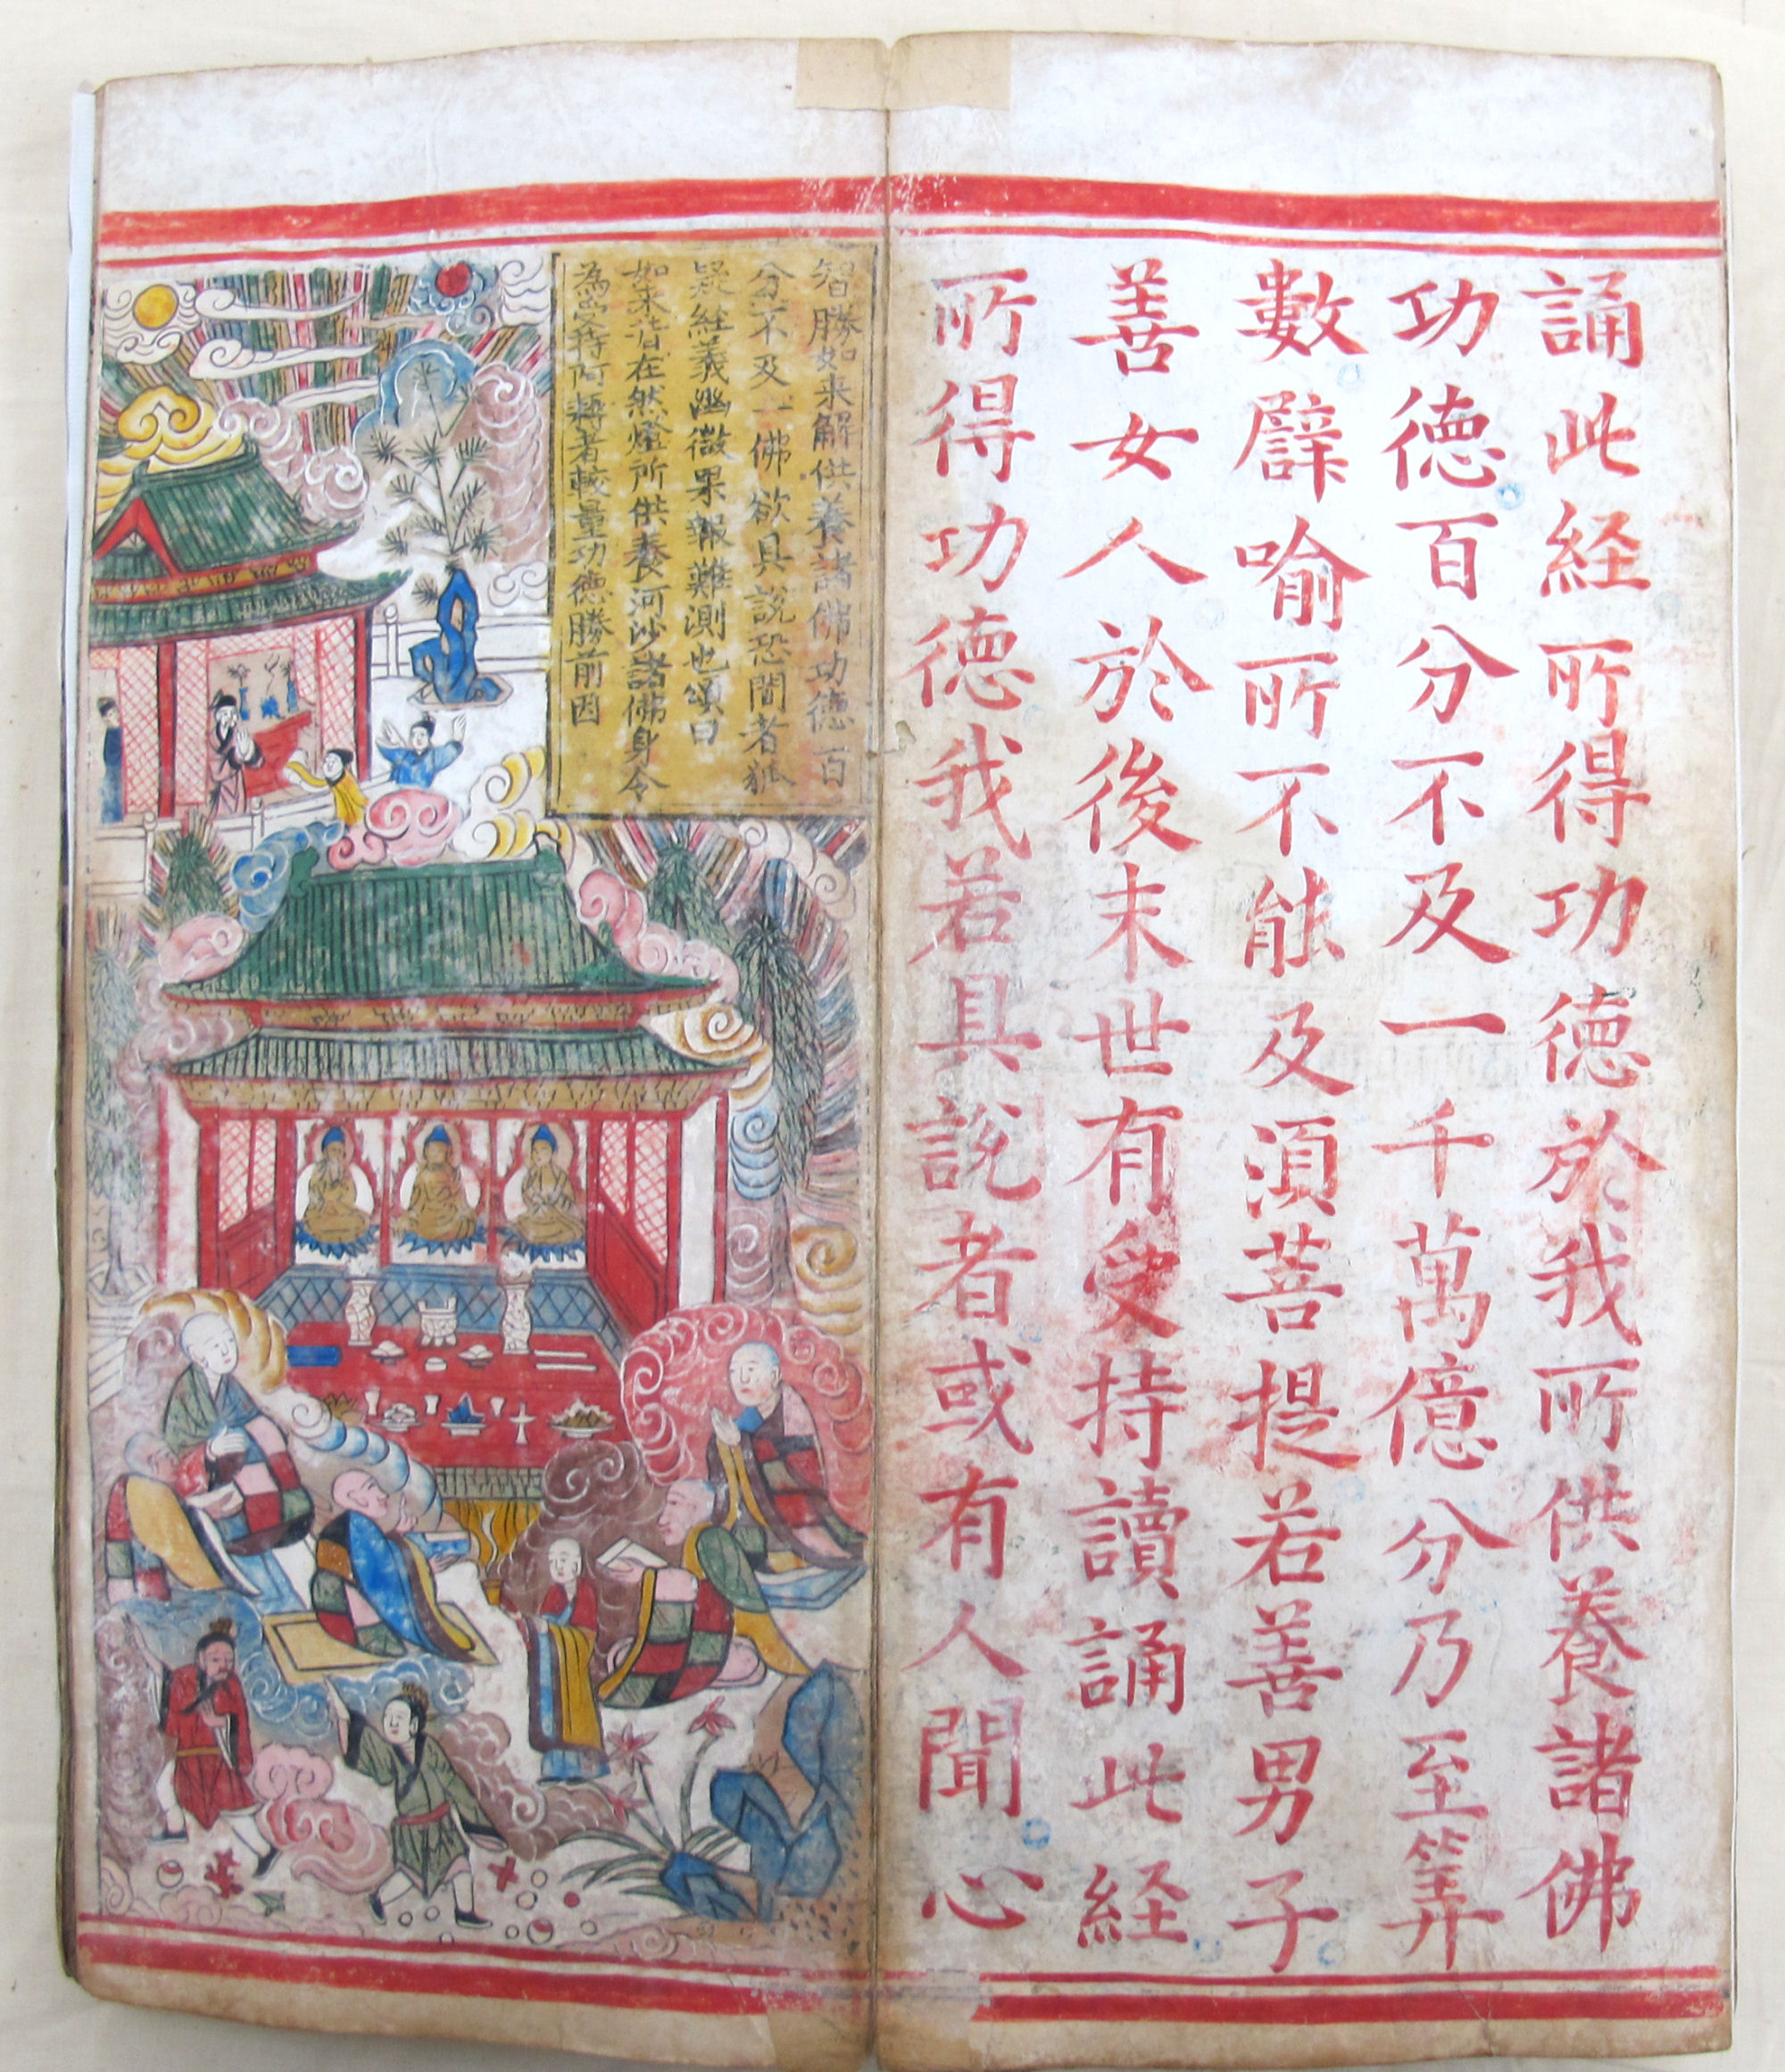 誦此経所得功徳於我所供養諸佛
功徳百分不及一千萬億分乃至筭
數譬喻所不能及湏菩提若善男子
善女人於後末世有受持讀誦此経
所得功徳我若具說者或有人聞心
智勝如来解供養諸佛功徳百
分不及一佛欲具說恐聞者狐
疑経義幽微果報難測也頌曰
如来昔在然燈所供養河沙諸佛身今
為受持阿耨者較量功徳勝前因